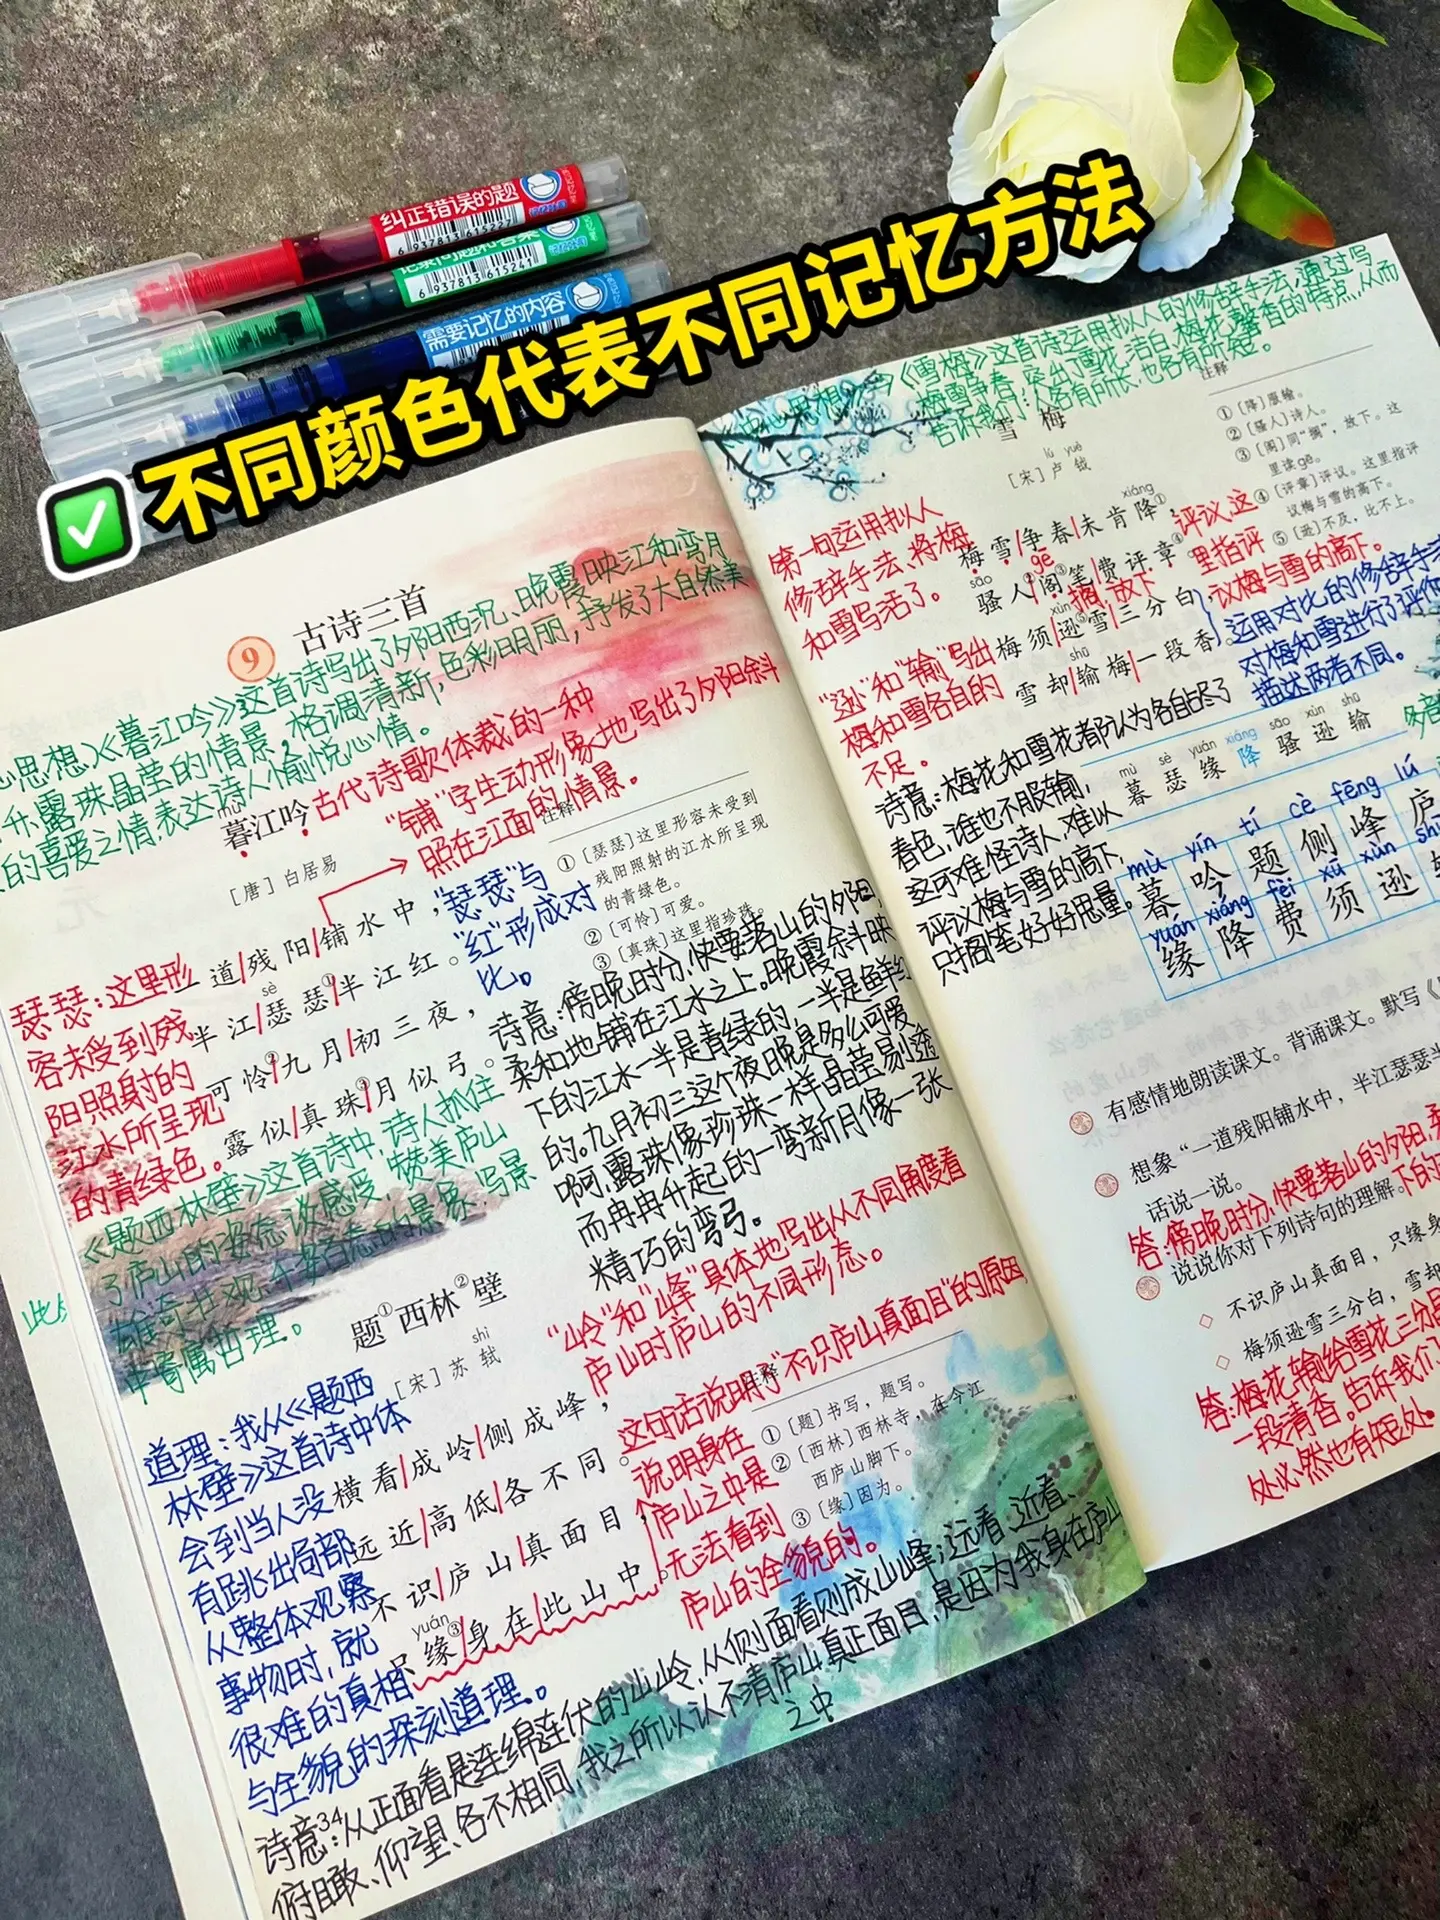 纠正错误的题
6 937813 615227
记录问题和答案
6 937813 615241
需要记忆的内容
不同颜色代表不同记忆方法
9
古诗三首
心思想》《暮江吟》这首诗写出了夕阳西沉、晚霞映江和弯月
升、露珠晶莹的情景，格调清新，色彩明丽，抒发了大自然美
的喜爱之情，表达诗人愉悦心情。
mù
暮江吟
古代诗歌体裁的一种
[唐] 白居易
"铺"字生动形象地写出了夕阳余斜
照在江面的情景。
注释
①[瑟瑟]这里形容未受到
残阳照射的江水所呈现
的青绿色。
②[可怜]可爱。
③[真珠]这里指珍珠。
一道残阳铺水中，
sè
半江瑟瑟①半江红。
可怜②九月初三夜，
露似真珠③月似弓。
"瑟瑟"与
"红"形成对
比。
瑟瑟：这里形
容未受到残
阳照射的
江水所呈现
的青绿色。
诗意：傍晚时分，快要落山的夕阳，
柔和地铺在江水之上。晚霞余斜映
下的江水一半是青绿的，一半是鲜红
的。九月初三这个夜晚是多么可爱
啊，露珠像珍珠一样晶莹剔透
而冉冉升起的一弯新月像一张
精巧的弯弓。
《题西林壁》这首诗中，诗人抓住
了庐山的姿态谈感受，赞美庐山
雄奇壮观、千姿百态的景象，写景
中寄寓哲理。
题①西林②壁
shì
[宋] 苏轼
"岭"和"峰"具体地写出从不同角度看
庐山时庐山的不同形态。
横看成岭侧成峰，
远近高低各不同。
不识庐山真面目，
yuán
只缘③身在此山中。
这句话说明了"不识庐山真面目"的原因
说明身在
庐山之中是
无法看到
庐山的全貌的。
注释
①[题]书写，题写。
②[西林]西林寺，在今江
西庐山脚下。
③[缘]因为。
道理：我从《题西
林壁》这首诗中体
会到当人没
有跳出局部
从整体观察
事物时，就
很难的真相
与全貌的深刻道理。
34
诗意：从正面看是连绵连伏的山岭，从侧面看则成山峰；远看、近看、
俯瞰、仰望、各不相同，我之所以认不清庐山真正面目，是因为我身在庐山
之中
《雪梅》这首诗运用拟人的修辞手法，通过写
梅雪争春，突出了雪花洁白、梅花馨香的特点，从而
告诉我们：人各有所长，也各有所短。
雪梅
lú yuè
[宋] 卢钺
注释
①[降]服输。
②[骚人]诗人。
③[阁]同"搁"，放下。这
里读gē。
④[评章]评议。这里指评
议梅与雪的高下。
⑤[逊]不及，比不上。
xiáng
梅雪争春未肯降①，
sāo gē
骚人②阁③笔费评章④。
xùn
梅须逊⑤雪三分白，
shū
雪却输梅一段香。
搁，放下
评议，这
里指评
议梅与雪的高下。
第一句运用拟人
修辞手法，将梅
和雪写活了。
"逊"和"输"写出
梅和雪各自的
不足。
运用对比的修辞手法
对梅和雪进行了评价
描述两者不同。
诗意：梅花和雪花都认为各自占尽了
春色，谁也不服输，
这可难怪诗人，难以
评议梅与雪的高下，
只搁笔好好思量。
mù sè yuán xiáng sāo xùn shū
暮 瑟 缘 降 骚 逊 输
mù yín tí cè fēng lú
暮 吟 题 侧 峰 庐
yuán xiáng fèi xū xùn shū
缘 降 费 须 逊
有感情地朗读课文。背诵课文。默写《
想象"一道残阳铺水中，半江瑟瑟半
话说一说。
答：傍晚时分，快要落山的夕阳，柔
说说你对下列诗句的理解。
下的
不识庐山真面目，只缘身
梅须逊雪三分白，雪却
答：梅花输给雪花三分
一段清香。告诉我们
处必然也有短处。